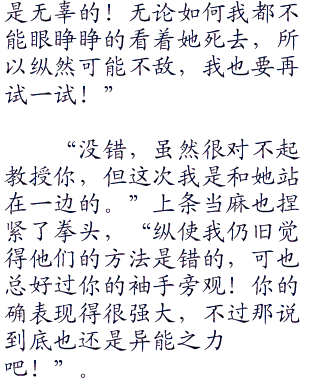 是无辜的！无论如何我都不
能眼睁睁的看着她死去，所
以纵然可能不敌，我也要再
试一试！”
“没错，虽然很对不起
教授你，但这次我是和她站
在一边的。”上条当麻也捏
紧了拳头，“纵使我仍旧觉
得他们的方法是错的，可也
总好过你的袖手旁观！你的
确表现得很强大，不过那说
到底也还是异能之力
吧！”。